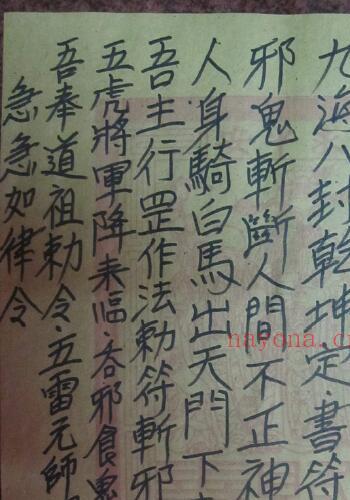 九海八封乾坤定·書符
邪鬼斬斷人間不正神
人身騎白馬出天門下
吾主行罡作法勅符斬邪
五虎將軍降来臨·吞邪食鬼
吾奉道祖勅令·五雷元師
急急如律令
nayona.c